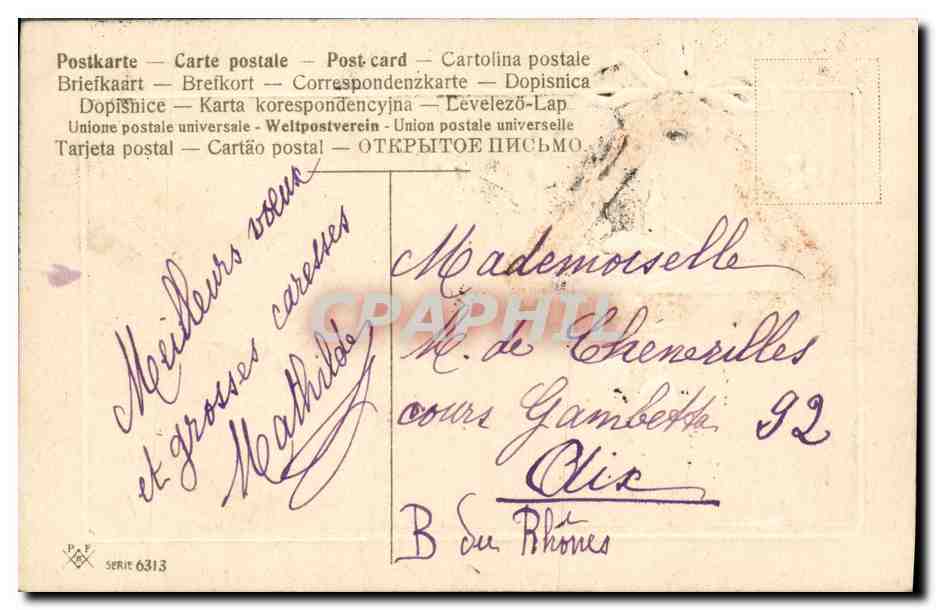 Postkarte — Carte postale — Post-card — Cartolina postale
Briefkaart — Brefkort — Correspondenzkarte — Dopisnica
Dopisnice — Karta korespondencyjna — Levelező-Lap
Unione postale universale - Weltpostverein - Union postale universelle
Tarjeta postal — Cartão postal — ОТКРЫТОЕ ПИСЬМО.
Meilleurs vœux
et grosses caresses
Mathilde
Mademoiselle
M. de Chenerilles
cours Gambetta 92
Aix
B du Rhônes
CPAPHIL.com
P F
B
SERIE 6313